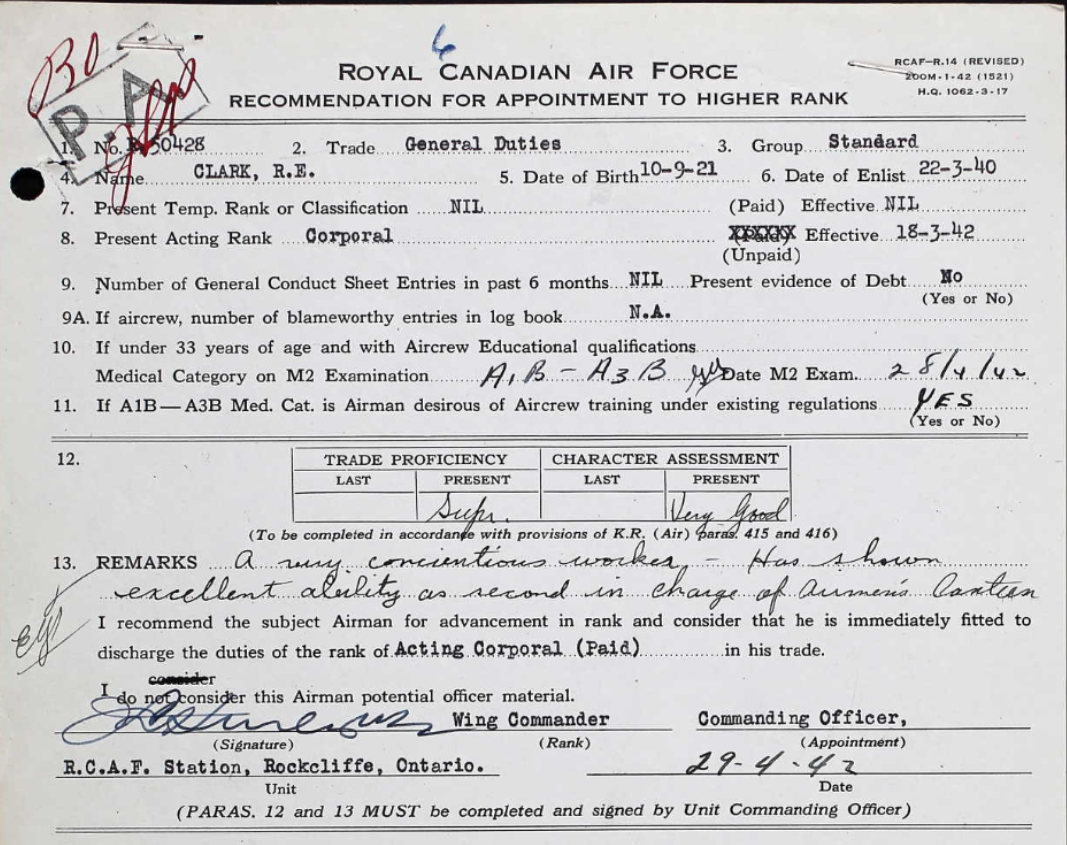 6
Bo
P.A
ROYAL CANADIAN AIR FORCE
RECOMMENDATION FOR APPOINTMENT TO HIGHER RANK
RCAF-R.14 (REVISED)
200M-1-42 (1521)
H.Q. 1062-3-17
1. No. 50428 2. Trade General Duties 3. Group Standard
4. Name CLARK, R.E. 5. Date of Birth 10-9-21 6. Date of Enlist 22-3-40
7. Present Temp. Rank or Classification NIL (Paid) Effective NIL
8. Present Acting Rank Corporal (Paid) Effective 18-3-42
(Unpaid)
9. Number of General Conduct Sheet Entries in past 6 months NIL Present evidence of Debt No
(Yes or No)
9A. If aircrew, number of blameworthy entries in log book N.A.
10. If under 33 years of age and with Aircrew Educational qualifications
Medical Category on M2 Examination A1B - A3B Date M2 Exam. 28/4/42
11. If A1B—A3B Med. Cat. is Airman desirous of Aircrew training under existing regulations YES
(Yes or No)
12. TRADE PROFICIENCY CHARACTER ASSESSMENT
LAST PRESENT LAST PRESENT
Supr. Very Good
(To be completed in accordance with provisions of K.R. (Air) paras. 415 and 416)
13. REMARKS A very concientious worker, - Has shown
excellent ability as second in charge of Airmen's Canteen
I recommend the subject Airman for advancement in rank and consider that he is immediately fitted to
discharge the duties of the rank of Acting Corporal (Paid) in his trade.
consider
I do not consider this Airman potential officer material.
Wing Commander Commanding Officer,
(Signature) (Rank) (Appointment)
R.C.A.F. Station, Rockcliffe, Ontario. 29-4-42
Unit Date
(PARAS. 12 and 13 MUST be completed and signed by Unit Commanding Officer)